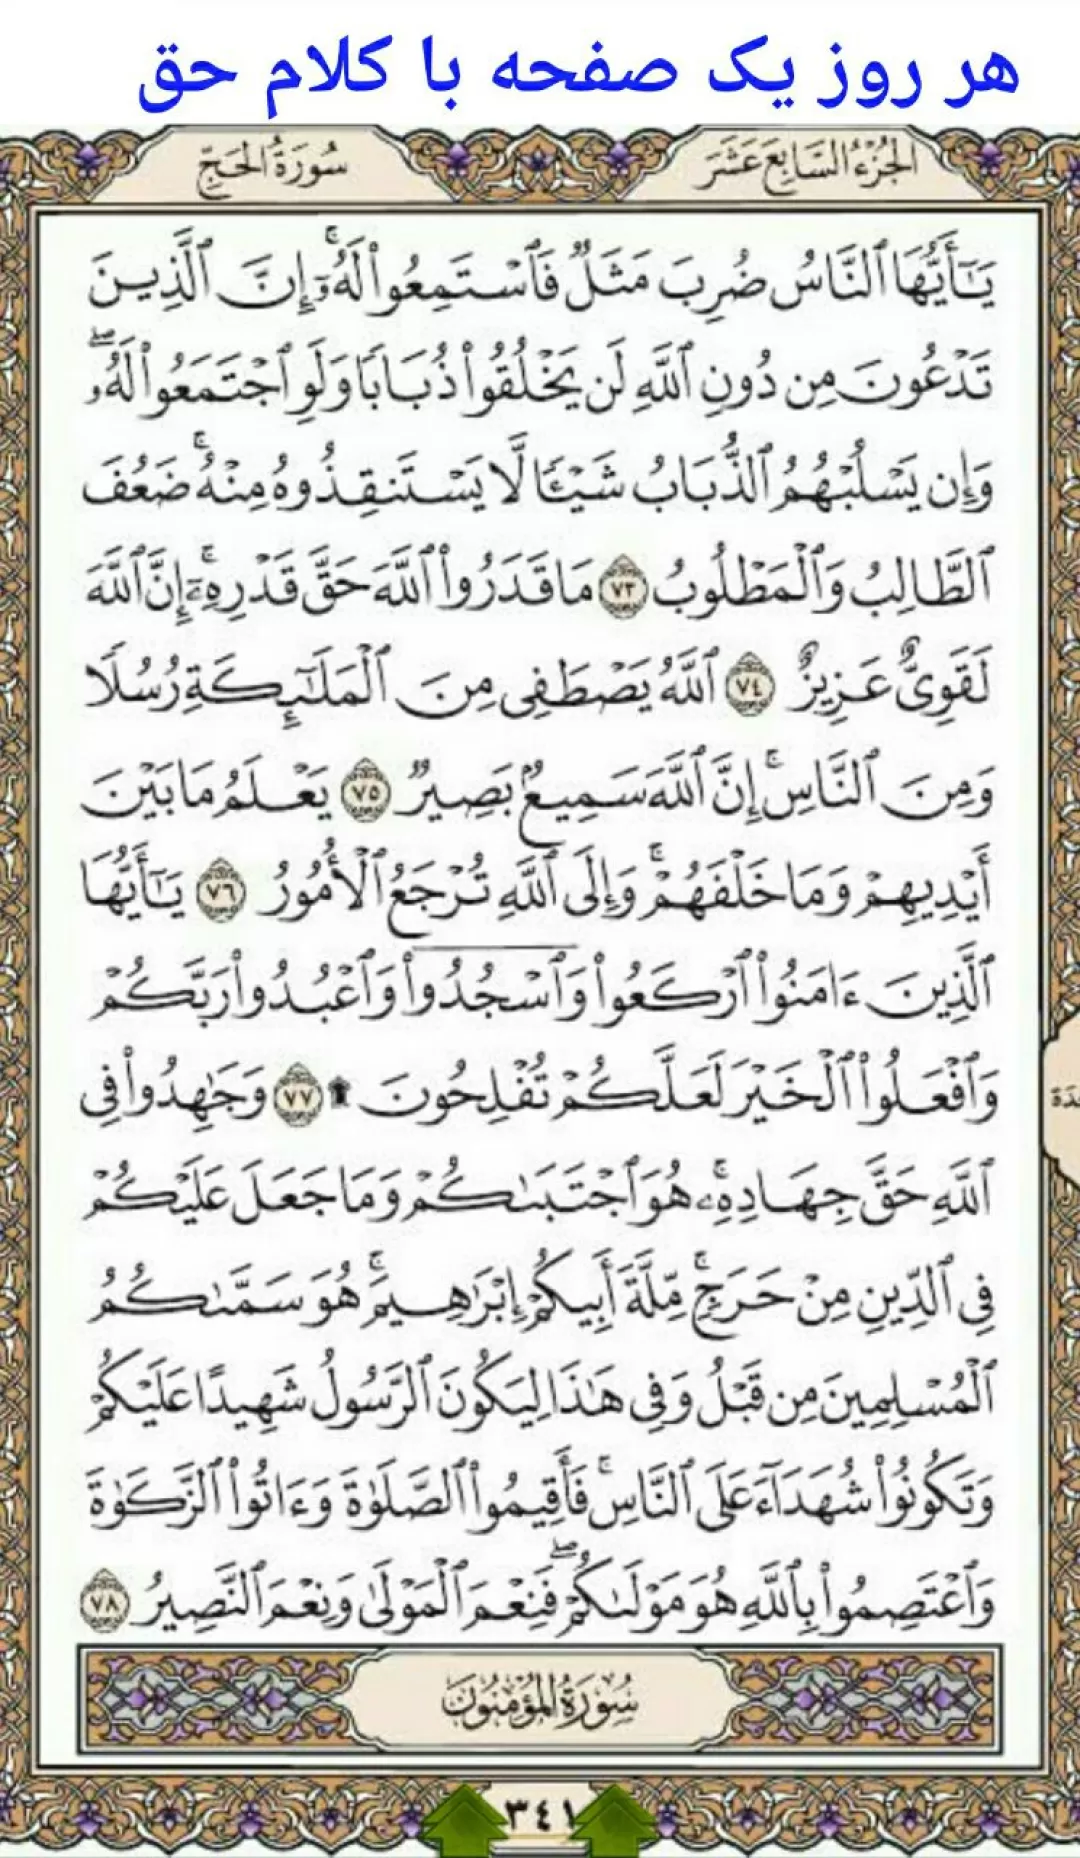 هر روز یک صفحه با کلام حق
الجُزْءُ السَّابِعَ عَشَرَ
سُورَةُ الحَجِّ
يَـٰٓأَيُّهَا ٱلنَّاسُ ضُرِبَ مَثَلٌ فَٱسْتَمِعُوا۟ لَهُۥٓ ۚ إِنَّ ٱلَّذِينَ
تَدْعُونَ مِن دُونِ ٱللَّهِ لَن يَخْلُقُوا۟ ذُبَابًا وَلَوِ ٱجْتَمَعُوا۟ لَهُۥ ۖ
وَإِن يَسْلُبْهُمُ ٱلذُّبَابُ شَيْـًٔا لَّا يَسْتَنقِذُوهُ مِنْهُ ۚ ضَعُفَ
ٱلطَّالِبُ وَٱلْمَطْلُوبُ ٧٣ مَا قَدَرُوا۟ ٱللَّهَ حَقَّ قَدْرِهِۦٓ ۚ إِنَّ ٱللَّهَ
لَقَوِىٌّ عَزِيزٌ ٧٤ ٱللَّهُ يَصْطَفِى مِنَ ٱلْمَلَـٰٓئِكَةِ رُسُلًا
وَمِنَ ٱلنَّاسِ ۚ إِنَّ ٱللَّهَ سَمِيعٌۢ بَصِيرٌ ٧٥ يَعْلَمُ مَا بَيْنَ
أَيْدِيهِمْ وَمَا خَلْفَهُمْ ۗ وَإِلَى ٱللَّهِ تُرْجَعُ ٱلْأُمُورُ ٧٦ يَـٰٓأَيُّهَا
ٱلَّذِينَ ءَامَنُوا۟ ٱرْكَعُوا۟ وَٱسْجُدُوا۟ وَٱعْبُدُوا۟ رَبَّكُمْ
وَٱفْعَلُوا۟ ٱلْخَيْرَ لَعَلَّكُمْ تُفْلِحُونَ ۩ ٧٧ وَجَـٰهِدُوا۟ فِى
ٱللَّهِ حَقَّ جِهَادِهِۦ ۚ هُوَ ٱجْتَبَىٰكُمْ وَمَا جَعَلَ عَلَيْكُمْ
فِى ٱلدِّينِ مِنْ حَرَجٍ ۚ مِّلَّةَ أَبِيكُمْ إِبْرَٰهِيمَ ۚ هُوَ سَمَّىٰكُمُ
ٱلْمُسْلِمِينَ مِن قَبْلُ وَفِى هَـٰذَا لِيَكُونَ ٱلرَّسُولُ شَهِيدًا عَلَيْكُمْ
وَتَكُونُوا۟ شُهَدَآءَ عَلَى ٱلنَّاسِ ۚ فَأَقِيمُوا۟ ٱلصَّلَوٰةَ وَءَاتُوا۟ ٱلزَّكَوٰةَ
وَٱعْتَصِمُوا۟ بِٱللَّهِ هُوَ مَوْلَىٰكُمْ ۖ فَنِعْمَ ٱلْمَوْلَىٰ وَنِعْمَ ٱلنَّصِيرُ ٧٨
سُورَةُ المُؤْمِنُونَ
٣٤١